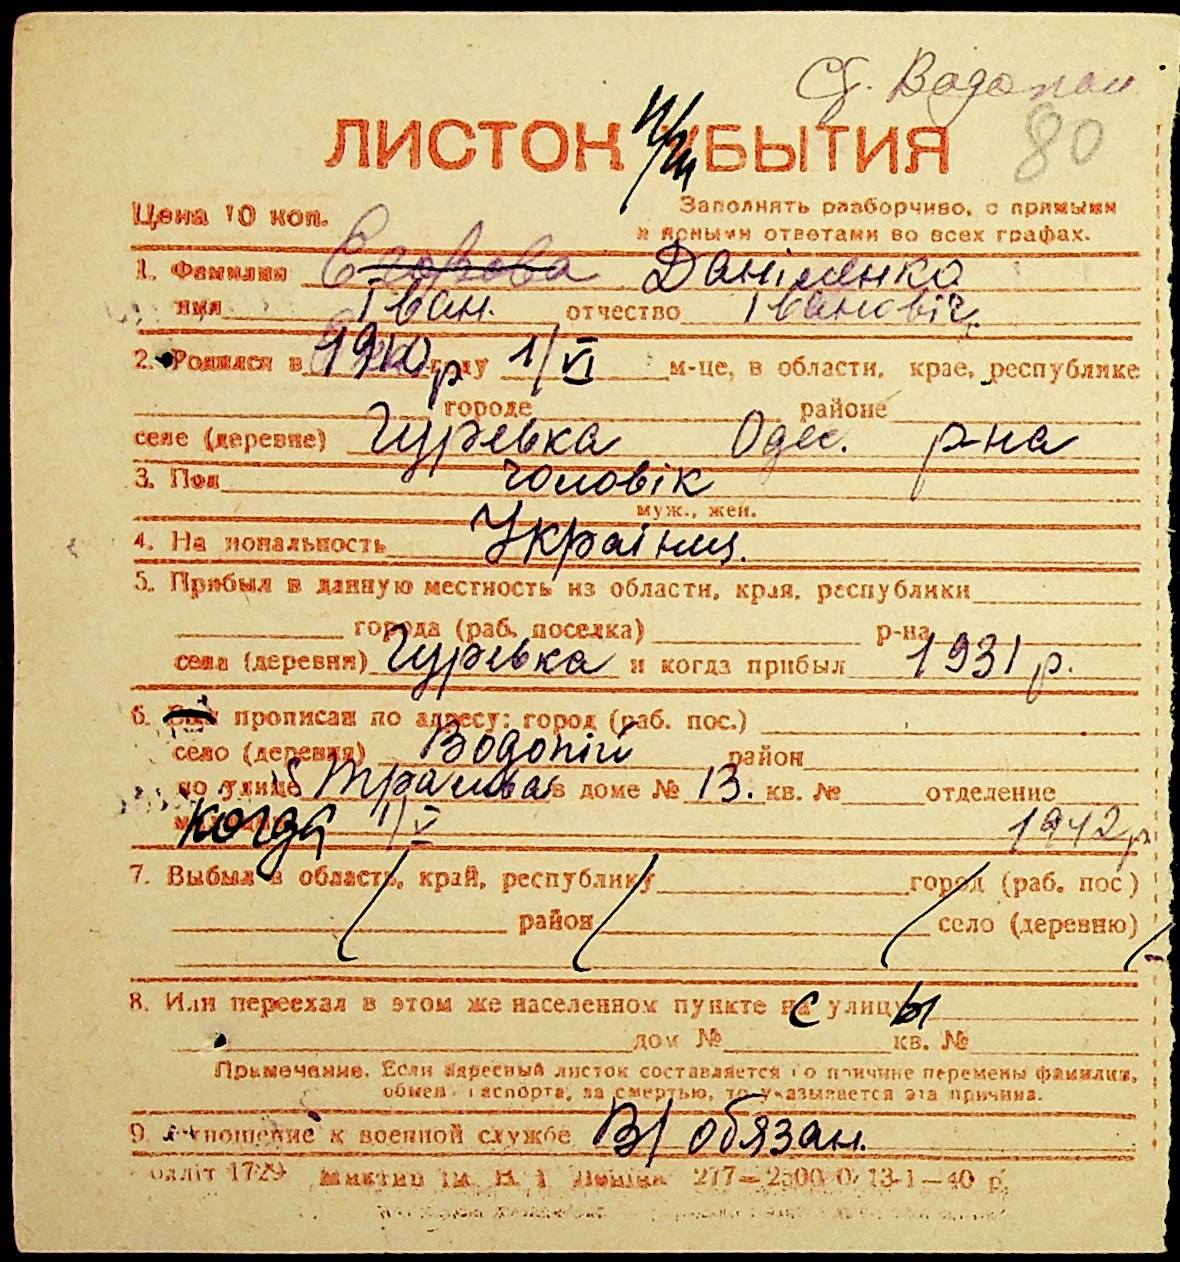 Ст. Водопой
80
ЛИСТОК УБЫТИЯ
Цена 10 коп.
Заполнять разборчиво, с прямыми
и ясными ответами во всех графах.
1. Фамилия Егорова Даніленко
имя Іван. отчество Івановіч.
2. Родился в 1910 р году 1/VI м-це, в области, крае, республике
городе районе
селе (деревне) Гурївка Одес. р-на
3. Пол чоловік
муж., жен.
4. Национальность Українц.
5. Прибыл в данную местность из области, края, республики
города (раб. поселка) р-на
села (деревни) Гурївка и когда прибыл 1931 р.
6. прописан по адресу: город (раб. пос.)
село (деревня) Водопій район
по улице в доме № 13. кв. № отделение
когда 1/V 1942 р
7. Выбыл в область, край, республику город (раб. пос)
район село (деревню)
8. Или переехал в этом же населенном пункте с улицы
дом № кв. №
Примечание. Если адресный листок составляется по причине перемены фамилии,
обмен паспорта, за смертью, то указывается эта причина.
9. Отношение к военной службе В/обязан.
1729 277—2500 0 13-1—40 р.